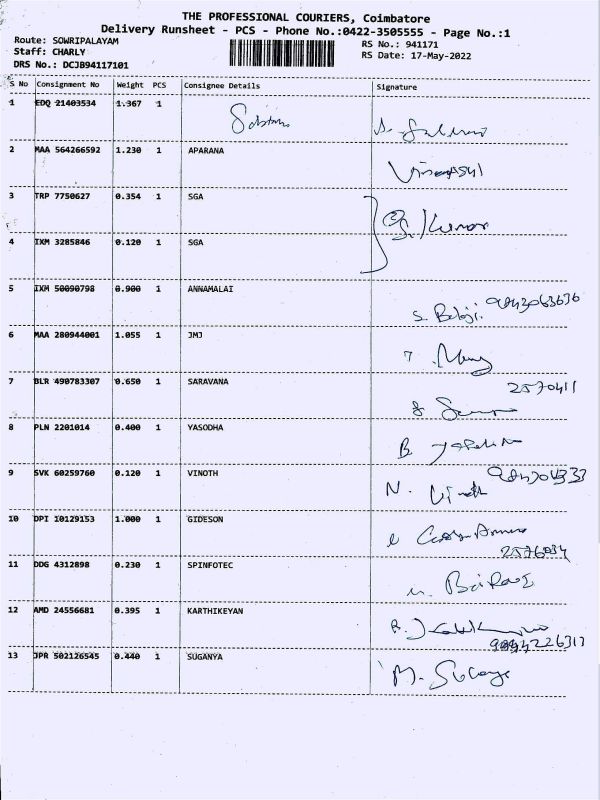 THE PROFESSIONAL COURIERS, Coimbatore
Delivery Runsheet - PCS - Phone No.:0422-3505555 - Page No.:1
Route: SOWRIPALAYAM
RS No.: 941171
Staff: CHARLY
RS Date: 17-May-2022
DRS No.: DCJB94117101
S No Consignment No Weight PCS Consignee Details Signature
1 EDQ 21403534 1.367 1
2 MAA 564266592 1.230 1 APARANA
3 TRP 7750627 0.354 1 SGA
Kumar
4 IXM 3285846 0.120 1 SGA
5 IXM 50090798 0.900 1 ANNAMALAI
9843063636
S. Balaji.
6 MAA 280944001 1.055 1 JMJ
7 BLR 490783307 0.650 1 SARAVANA
2570411
8 PLN 2201014 0.400 1 YASODHA
B.
9 SVK 60259760 0.120 1 VINOTH
N. Vinoth
10 DPI 10129153 1.000 1 GIDESON
2576034
11 DDG 4312898 0.230 1 SPINFOTEC
12 AMD 24556681 0.395 1 KARTHIKEYAN
9994226317
13 JPR 502126545 0.440 1 SUGANYA
M.